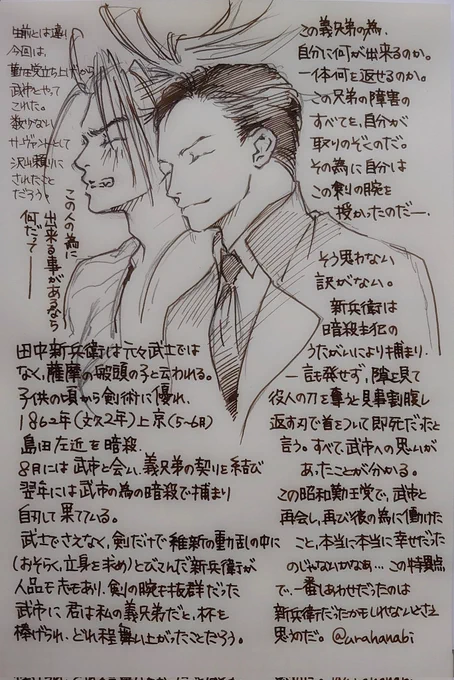 生前とは違い
今回は、
勤王党立ち上げから
武市とやって
これた。
数少ない
サーヴァントとして
沢山頼りに
されたこと
だろう。
この人の為に
出来る事があるなら
何だって――
この義兄弟の為、
自分に何が出来るのか。
一体何を返せるのか。
この兄弟の障害の
すべてを、自分が
取りのぞくのだ。
その為に自分は
この剣の腕を
授かったのだ―.
そう思わない
訳がない。
新兵衛は
暗殺主犯の
うたがいにより捕まり.
一言も発せず,隙を見て
役人の刀を奪うと見事割腹し
返す刃で首をついて即死だったと
言う。すべて、武市への思いが
あったことが分かる。
この昭和勤王党で、武市と
再会し,再び彼の為に働けた
こと,本当に本当に幸せだった
のじゃないかなあ…この特異点
で、一番しあわせだったのは
新兵衛だったかもしれないとさえ
思うのだ。@urahanabi
田中新兵衛は元々武士では
なく、薩摩の船頭の子と云われる。
子供の頃から剣術に優れ、
1862年(文久2年)上京(5~6月)
島田左近を暗殺.
8月には武市と会い、義兄弟の契りを結び
翌年には武市の為の暗殺で捕まり
自刃して果てている。
武士でさえなく、剣だけで維新の動乱の中に
(おそらく,立身を求め)とびこんだ新兵衛が
人品も志もあり、剣の腕も抜群だった
武市に君は私の義兄弟だと、杯を
捧げられ、どれ程舞い上がったことだろう。